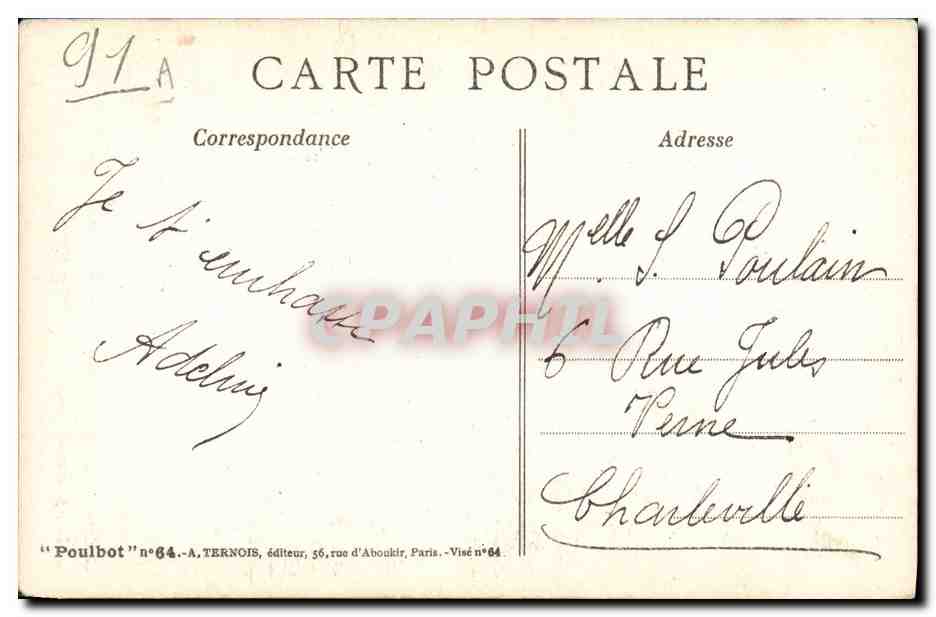 91 A
CARTE POSTALE
Correspondance
Je t'embrasse
Adeline
Adresse
Melle S. Poulain
6 Rue Jules
Verne
Charleville
"Poulbot" nº 64.-A. TERNOIS, éditeur, 56, rue d'Aboukir, Paris.-Visé nº 64
CPAPHIL